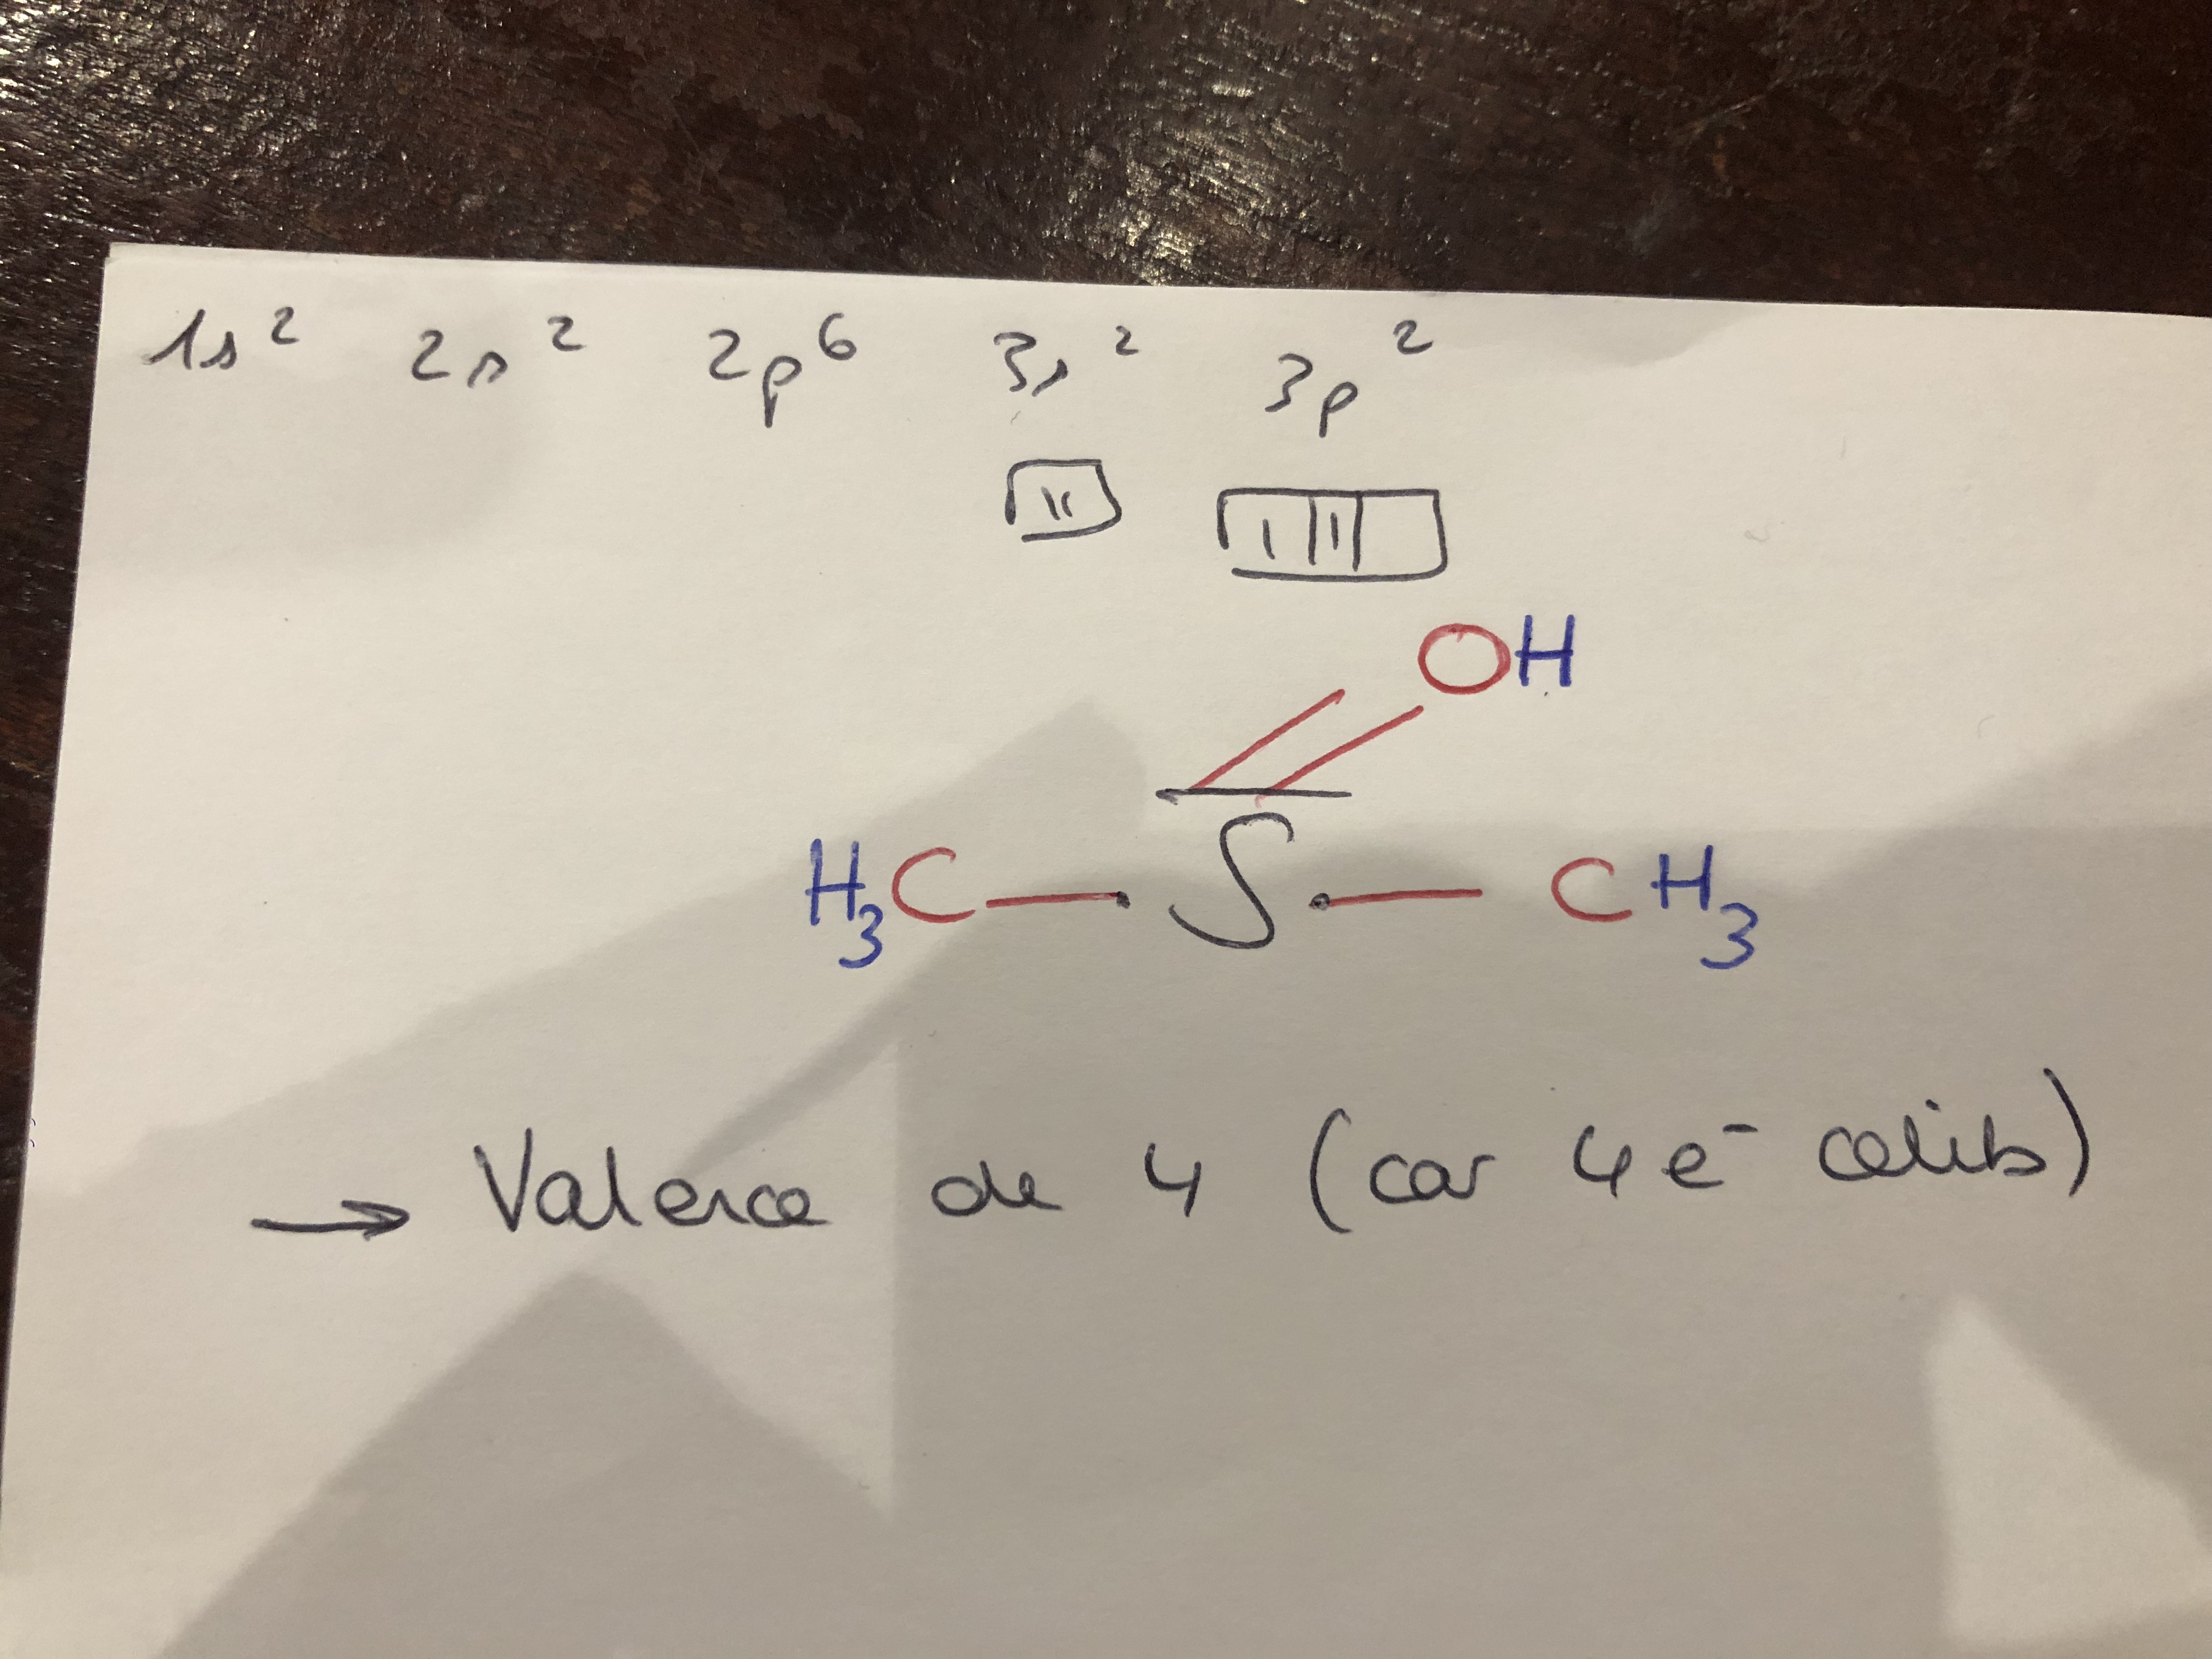 1s² 2s² 2p⁶ 3s² 3p²
OH
H₃C — S — CH₃
→ Valence de 4 (car 4 e⁻ celib)